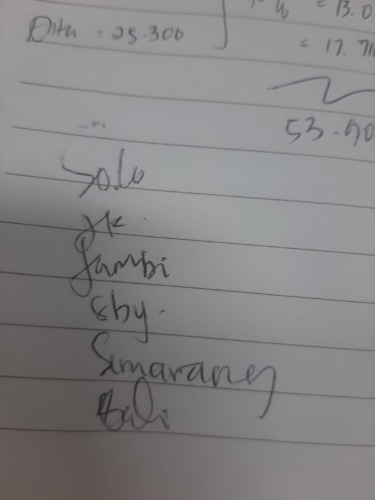 = 13.0
Dita . 25.300
= 17.71
53.90
Solo
JK.
Jambi
Sby.
Semarang
Bali